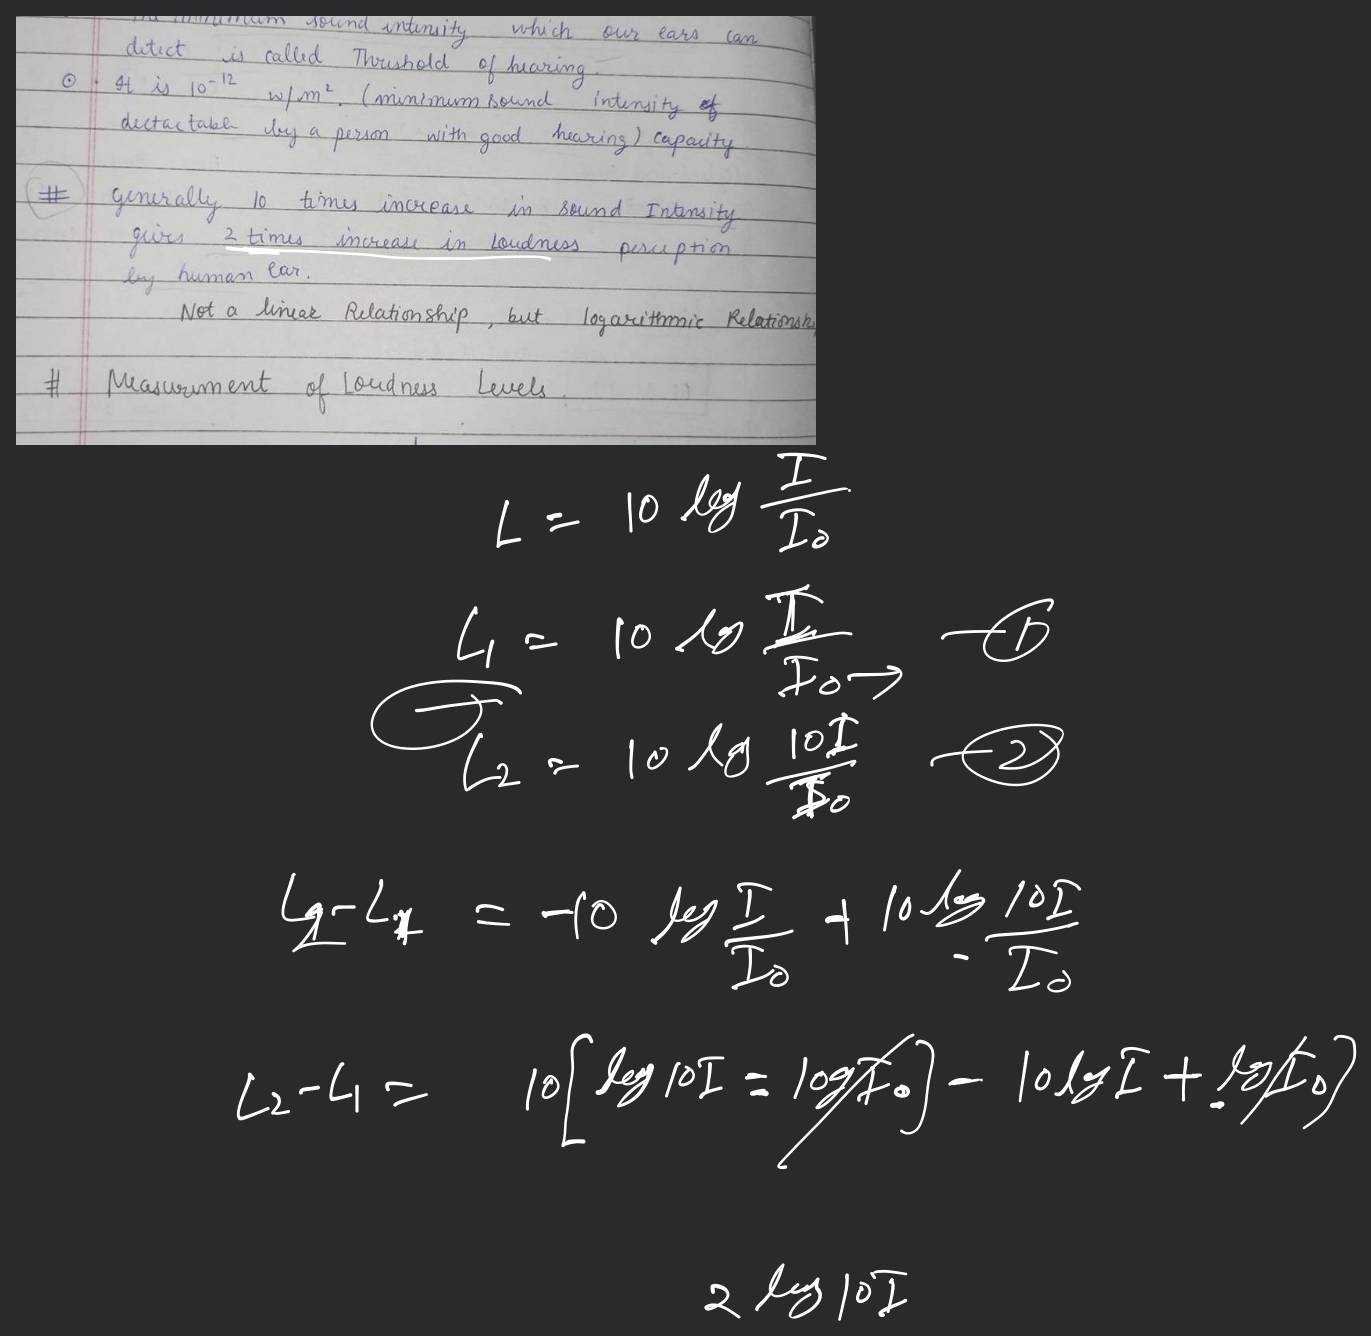 The minimum sound intensity which our ears can
detect is called Threshold of hearing.
⊙ • It is 10⁻¹² w/m². (minimum sound intensity of
dectactable by a person with good hearing) capacity
# generally 10 times increase in sound Intensity
gives 2 times increase in Loudness perception
by human ear.
Not a linear Relationship, but logarithmic Relationsh
# Measurment of Loudness Levels.
L = 10 log I/I₀
L₁ = 10 log I/I₀ → —①
L₂ = 10 log 10I/I₀ —②
L₂-L₁ = -10 log I/I₀ + 10 log 10I/I₀
L₂-L₁ = 10[log 10I = log I₀] - 10 log I + log I₀)
2 log 10I